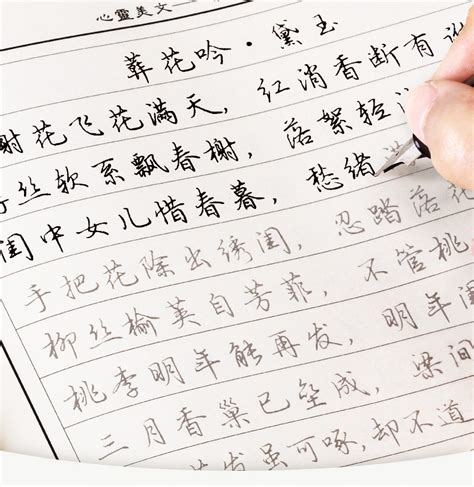 心靈美文
葬花吟·黛玉
花飞花滿天，红消香断有
丝软系飘春榭，落絮轻
闺中女儿惜春暮，愁绪
手把花除出绣闺，忍踏落花
柳丝榆荚自芳菲，不管桃
桃李明年能再发，明年闺
三月香巢已垒成，梁间
发虽可啄，却不道